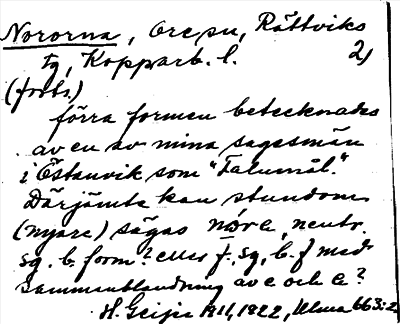 Nororna, Ore sn, Rättviks
tg, Kopparb. l. 2)
(forts.)
förra formen betecknades
av en av mina sagesmän
i Östanvik som "Falumål."
Därjämte kan stundom
(nyare) sägas nóra, neutr.
sg. b. form? eller f. sg. b. f med
sammanblandning av e och a?
H. Geijer 1911, 1922, Ulma 663:2